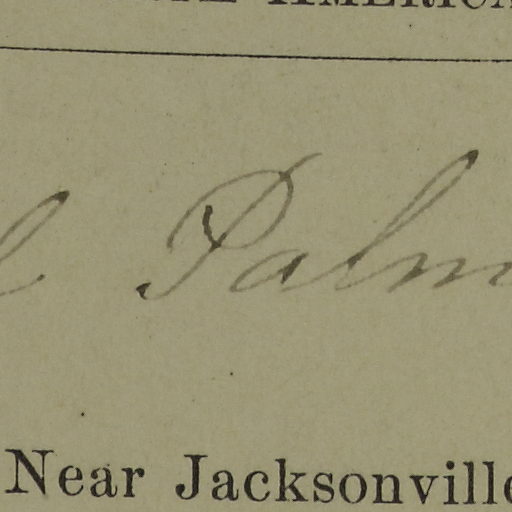 AMERICA
l Palm
Near Jacksonville